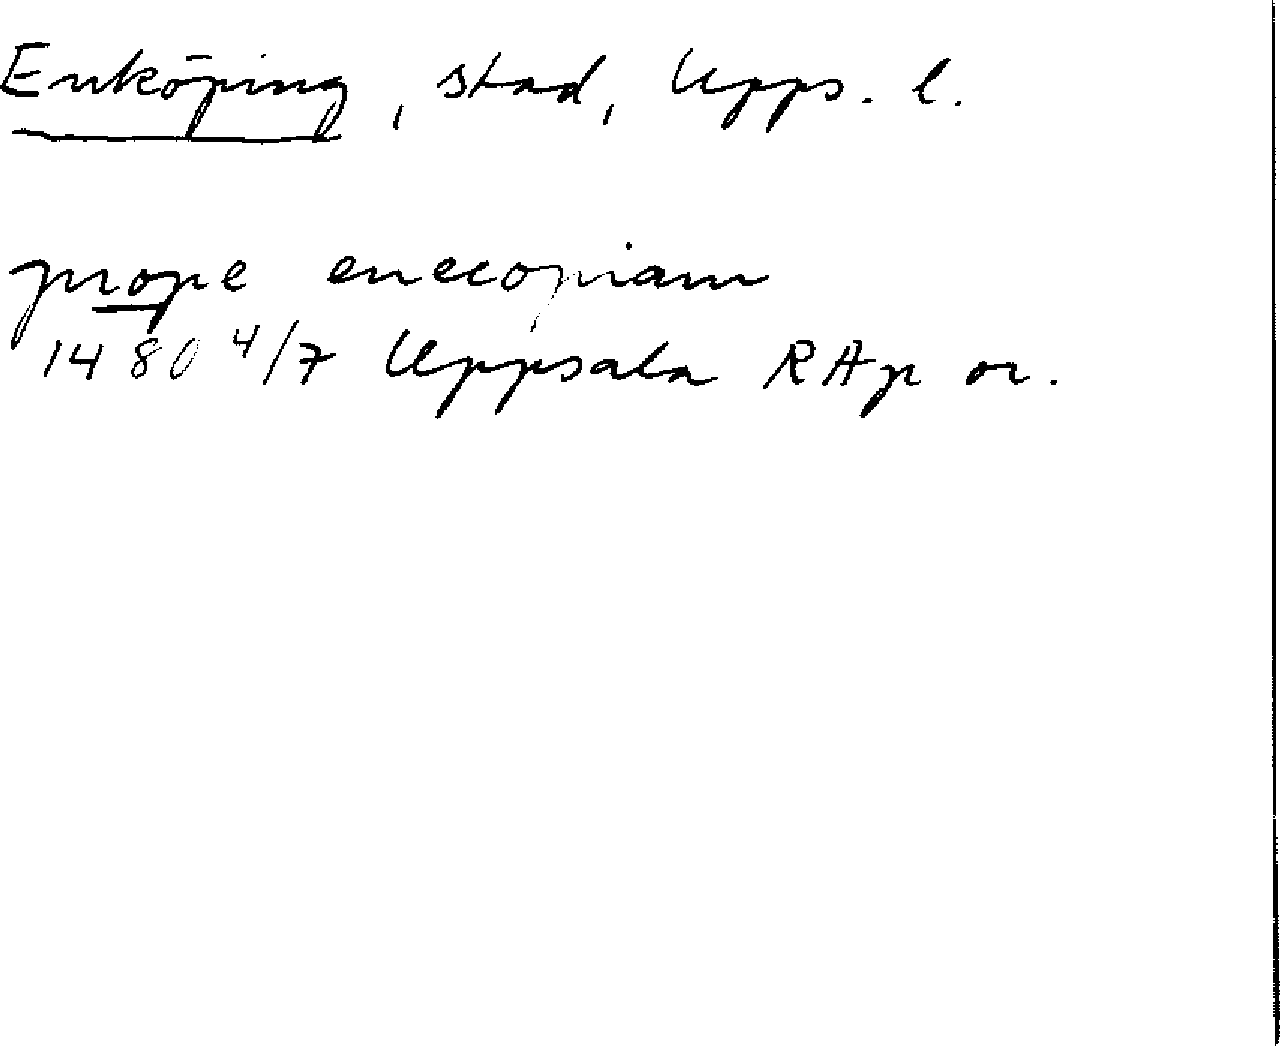 Enköping, stad, Upps. l.
prope enecopiam
1480 4/7 Uppsala RAp or.